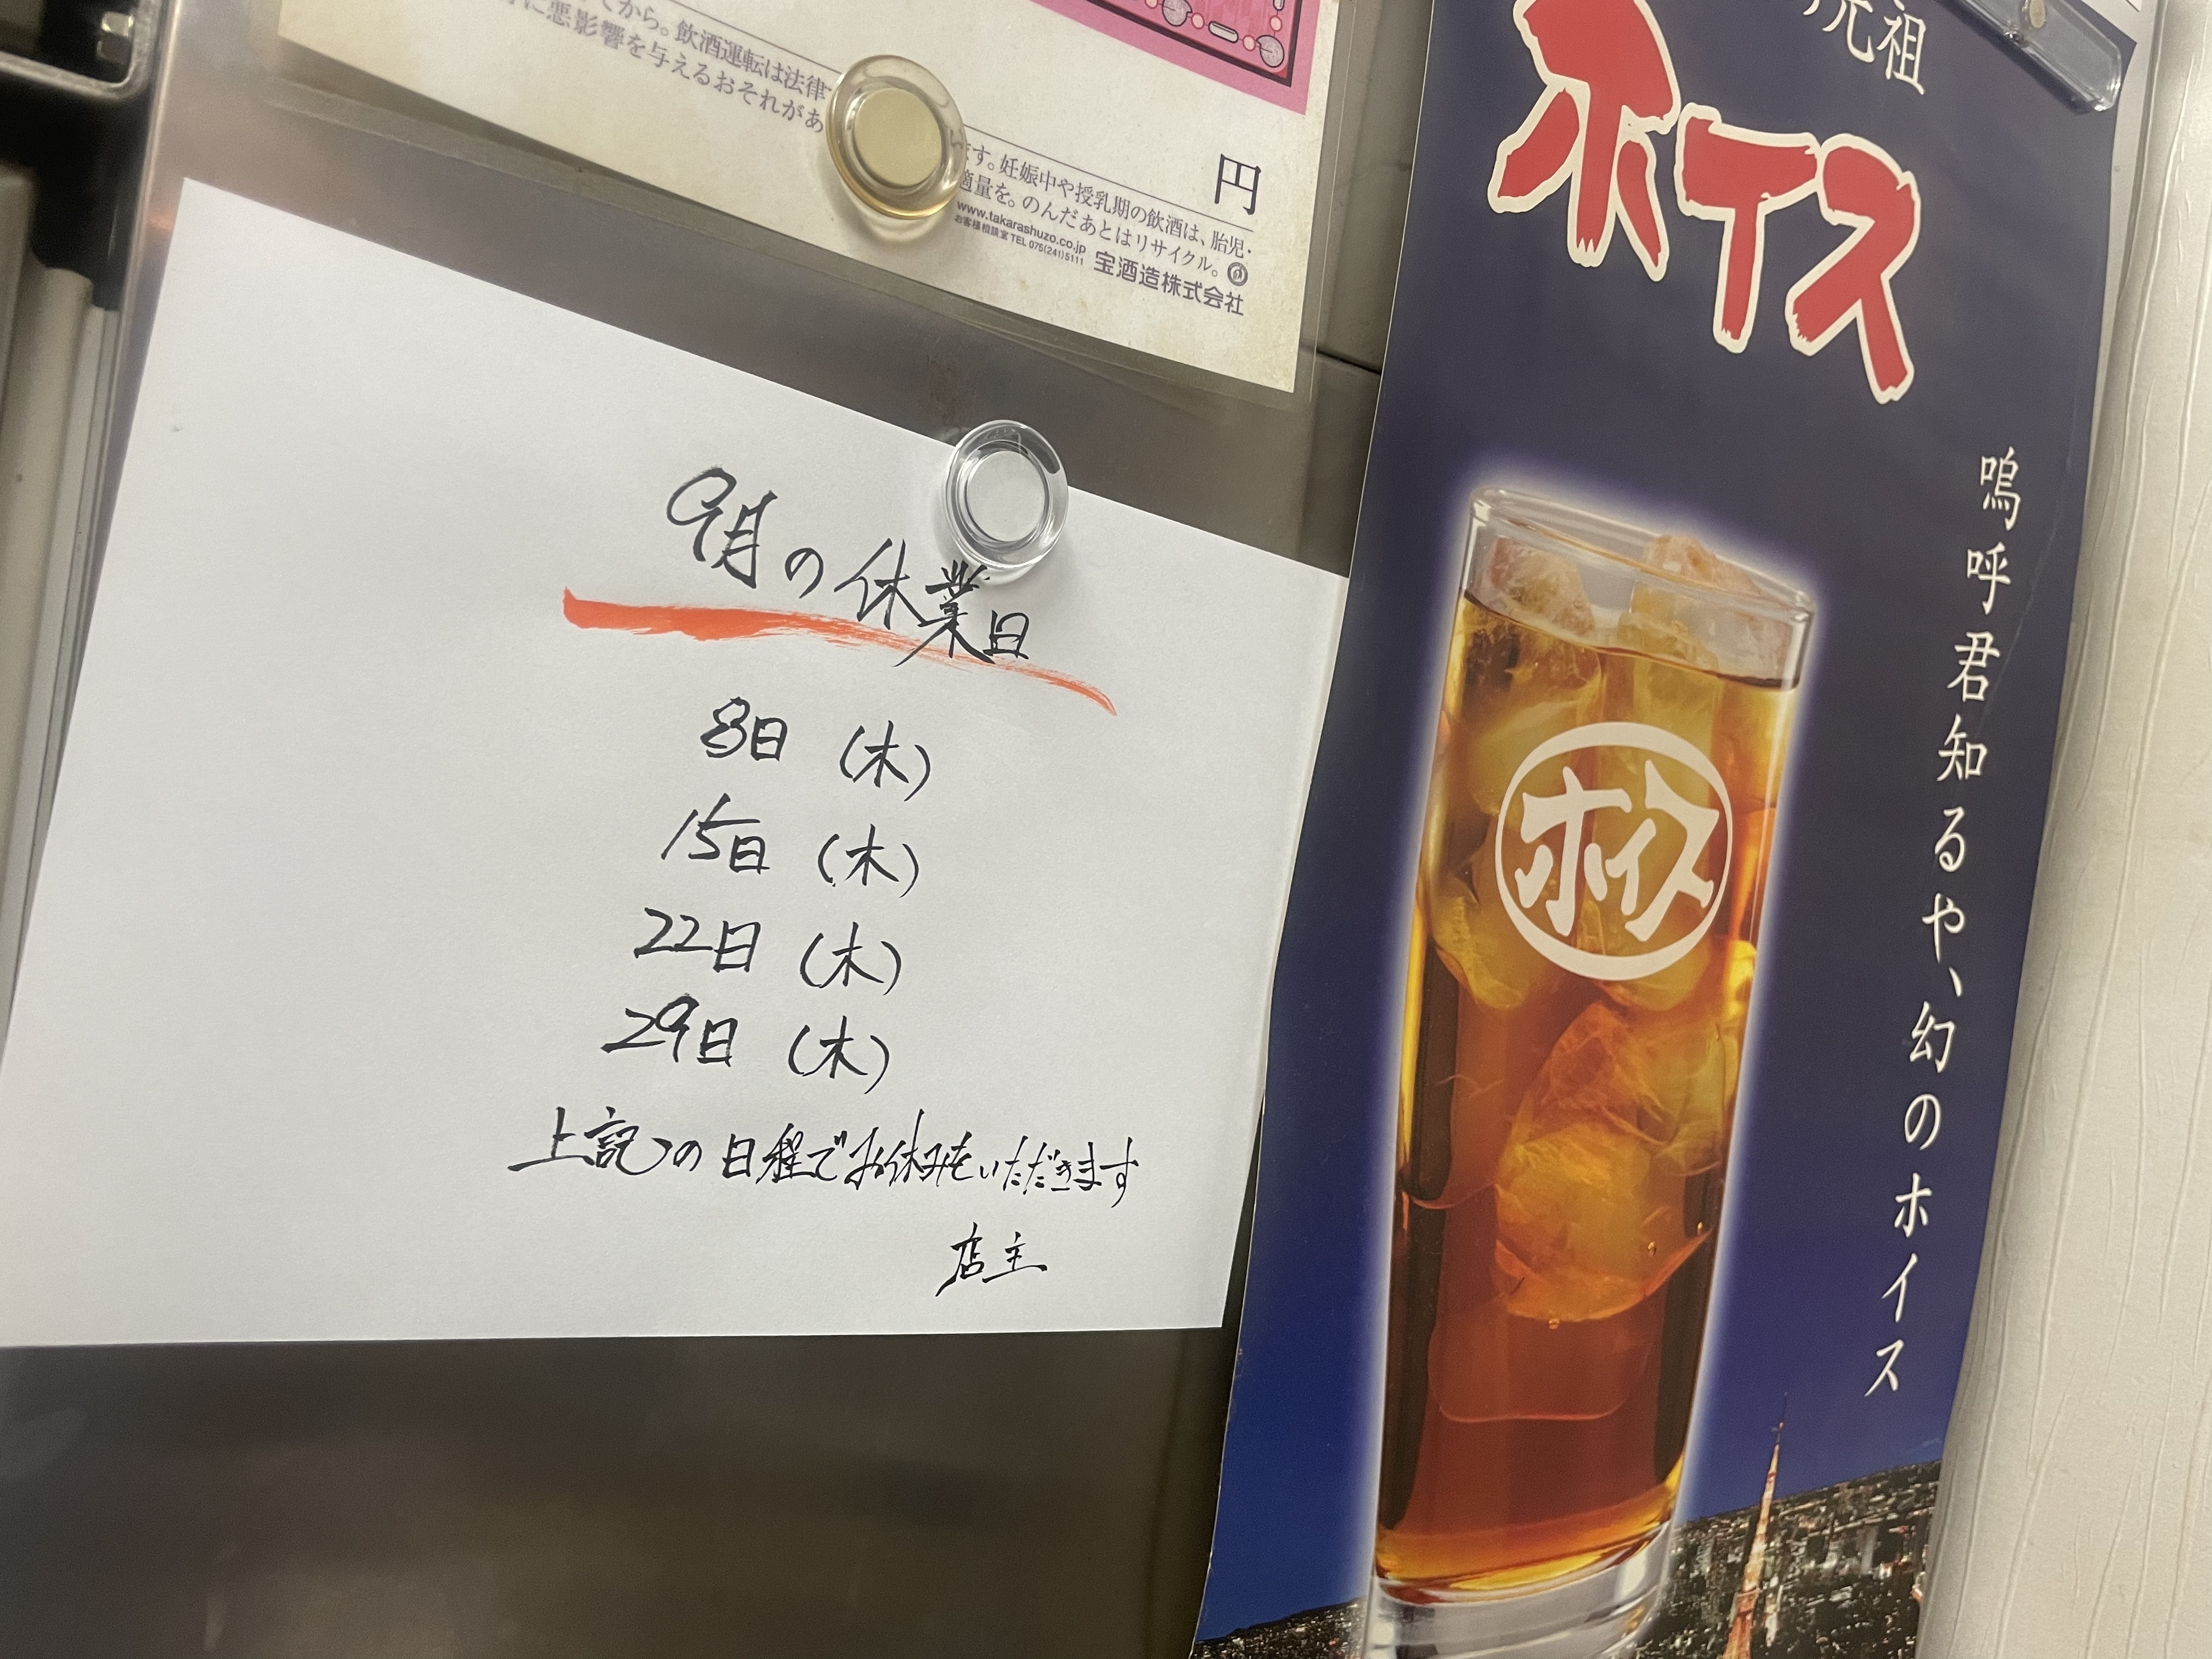 てから。飲酒運転は法律
に悪影響を与えるおそれがあ
ます。妊娠中や授乳期の飲酒は、胎児・
適量を。のんだあとはリサイクル。
円
www.takarashuzo.co.jp
お客様相談室 TEL 075(241)5111
宝酒造株式会社
9月の休業日
8日 (木)
15日 (木)
22日 (木)
29日 (木)
上記の日程でお休みをいただきます
店主
元祖
ホイス
嗚呼君知るや、幻のホイス
ホイス